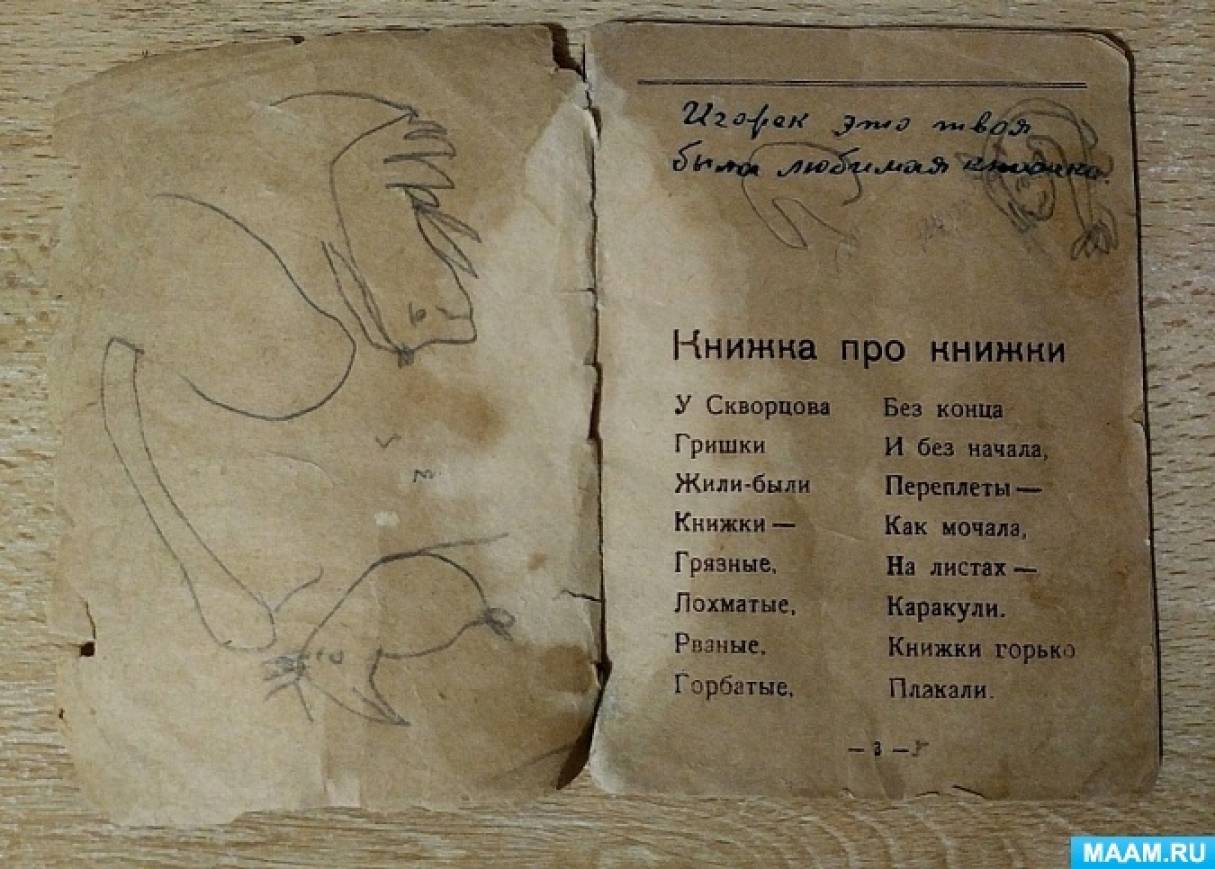 Игорек это твоя
была любимая книжка.
Книжка про книжки
У Скворцова
Гришки
Жили-были
Книжки —
Грязные,
Лохматые,
Рваные,
Горбатые,
Без конца
И без начала,
Переплеты —
Как мочала,
На листах —
Каракули.
Книжки горько
Плакали.
— 3 —
MAAM.RU